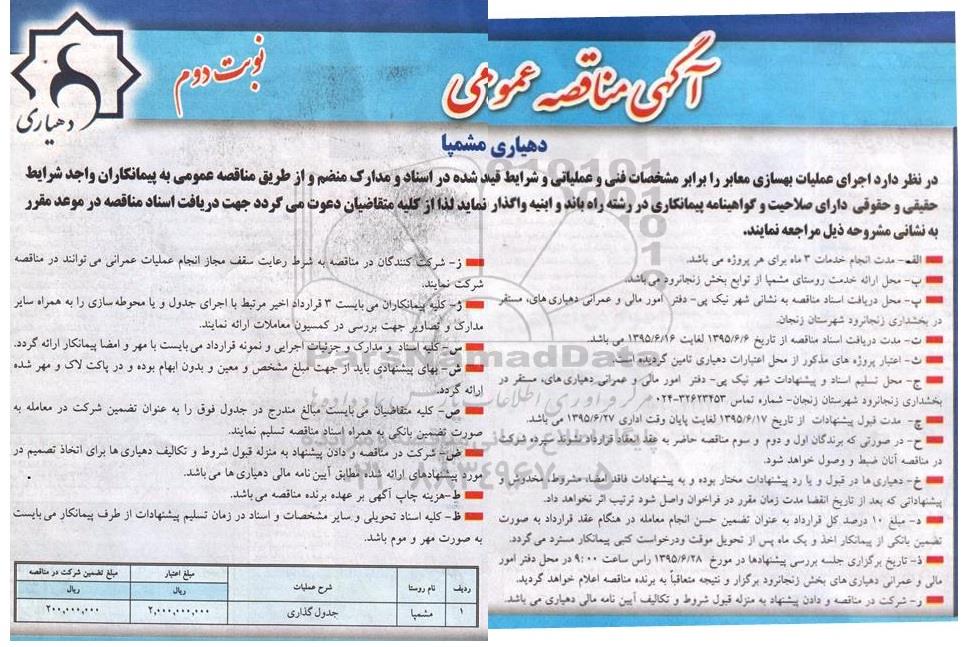 آگهی مناقصه عمومی
نوبت دوم
دهیاری
دهیاری مشمپا
در نظر دارد اجرای عملیات بهسازی معابر را برابر مشخصات فنی و عملیاتی و شرایط قید شده در اسناد و مدارک منضم و از طریق مناقصه عمومی به پیمانکاران واجد شرایط
حقیقی و حقوقی دارای صلاحیت و گواهینامه پیمانکاری در رشته راه باند و ابنیه واگذار نماید لذا از کلیه متقاضیان دعوت می گردد جهت دریافت اسناد مناقصه در موعد مقرر
به نشانی مشروحه ذیل مراجعه نمایند.
الف- مدت انجام خدمات ۳ ماه برای هر پروژه می باشد.
ب- محل ارائه خدمت روستای مشمپا از توابع بخش زنجانرود می‌باشد.
پ- محل دریافت اسناد مناقصه به نشانی شهر نیک پی- دفتر امور مالی و عمرانی دهیاری های، مستقر
در بخشداری زنجانرود شهرستان زنجان.
ت- مدت دریافت اسناد مناقصه از تاریخ ۱۳۹۵/۶/۶ لغایت ۱۳۹۵/۶/۱۶ می باشد.
ث- اعتبار پروژه های مذکور از محل اعتبارات دهیاری تامین گردیده است.
ج- محل تسلیم اسناد و پیشنهادات شهر نیک پی- دفتر امور مالی و عمرانی دهیاری های، مستقر در
بخشداری زنجانرود شهرستان زنجان- شماره تماس ۳۲۶۲۳۴۵۳-۰۲۴
چ- مدت قبول پیشنهادات از تاریخ ۱۳۹۵/۶/۱۷ لغایت پایان وقت اداری ۱۳۹۵/۶/۲۷ می باشد.
ح- در صورتی که برندگان اول و دوم و سوم مناقصه حاضر به عقد انعقاد قرارداد نشوند سپرده شرکت
در مناقصه آنان ضبط و وصول خواهد شود.
خ- دهیاری ها در قبول و یا رد پیشنهادات مختار بوده و به پیشنهادات فاقد امضاء، مشروط، مخدوش و
پیشنهاداتی که بعد از تاریخ انقضا مدت زمان مقرر در فراخوان واصل شود ترتیب اثر نخواهد داد.
د- مبلغ ۱۰ درصد کل قرارداد به عنوان تضمین حسن انجام معامله در هنگام عقد قرارداد به صورت
تضمین بانکی از پیمانکار اخذ و یک ماه پس از تحویل موقت ودرخواست کتبی پیمانکار مسترد می گردد.
ذ- تاریخ برگزاری جلسه بررسی پیشنهادها در مورخ ۱۳۹۵/۶/۲۸ راس ساعت ۹:۰۰ در محل دفتر امور
مالی و عمرانی دهیاری های بخش زنجانرود برگزار و نتیجه متعاقباً به برنده مناقصه اعلام خواهد گردید.
ر- شرکت در مناقصه و دادن پیشنهاد به منزله قبول شروط و تکالیف آیین نامه مالی دهیاری می باشد.
ز- شرکت کنندگان در مناقصه به شرط رعایت سقف مجاز انجام عملیات عمرانی می توانند در مناقصه
شرکت نمایند.
ژ- کلیه پیمانکاران می بایست ۳ قرارداد اخیر مرتبط با اجرای جدول و یا محوطه سازی را به همراه سایر
مدارک و تصاویر جهت بررسی در کمسیون معاملات ارائه نمایند.
س- کلیه اسناد و مدارک و جزئیات اجرایی و نمونه قرارداد می بایست با مهر و امضا پیمانکار ارائه گردد.
ش- بهای پیشنهادی باید از جهت مبلغ مشخص و معین و بدون ابهام بوده و در پاکت لاک و مهر شده
ارائه گردد.
ص- کلیه متقاضیان می بایست مبالغ مندرج در جدول فوق را به عنوان تضمین شرکت در معامله به
صورت تضمین بانکی به همراه اسناد مناقصه تسلیم نمایند.
ض- شرکت در مناقصه و دادن پیشنهاد به منزله قبول شروط و تکالیف دهیاری ها برای اتخاذ تصمیم در
مورد پیشنهادهای ارائه شده مطابق آیین نامه مالی دهیاری ها می باشد.
ط- هزینه چاپ آگهی بر عهده برنده مناقصه می باشد.
ظ- کلیه اسناد تحویلی و سایر مشخصات و اسناد در زمان تسلیم پیشنهادات از طرف پیمانکار می بایست
به صورت مهر و موم باشد.
ردیف نام روستا شرح عملیات مبلغ اعتبار ریال مبلغ تضمین شرکت در مناقصه ریال
۱ مشمپا جدول گذاری ۲,۰۰۰,۰۰۰,۰۰۰ ۲۰۰,۰۰۰,۰۰۰
ParsNamadData